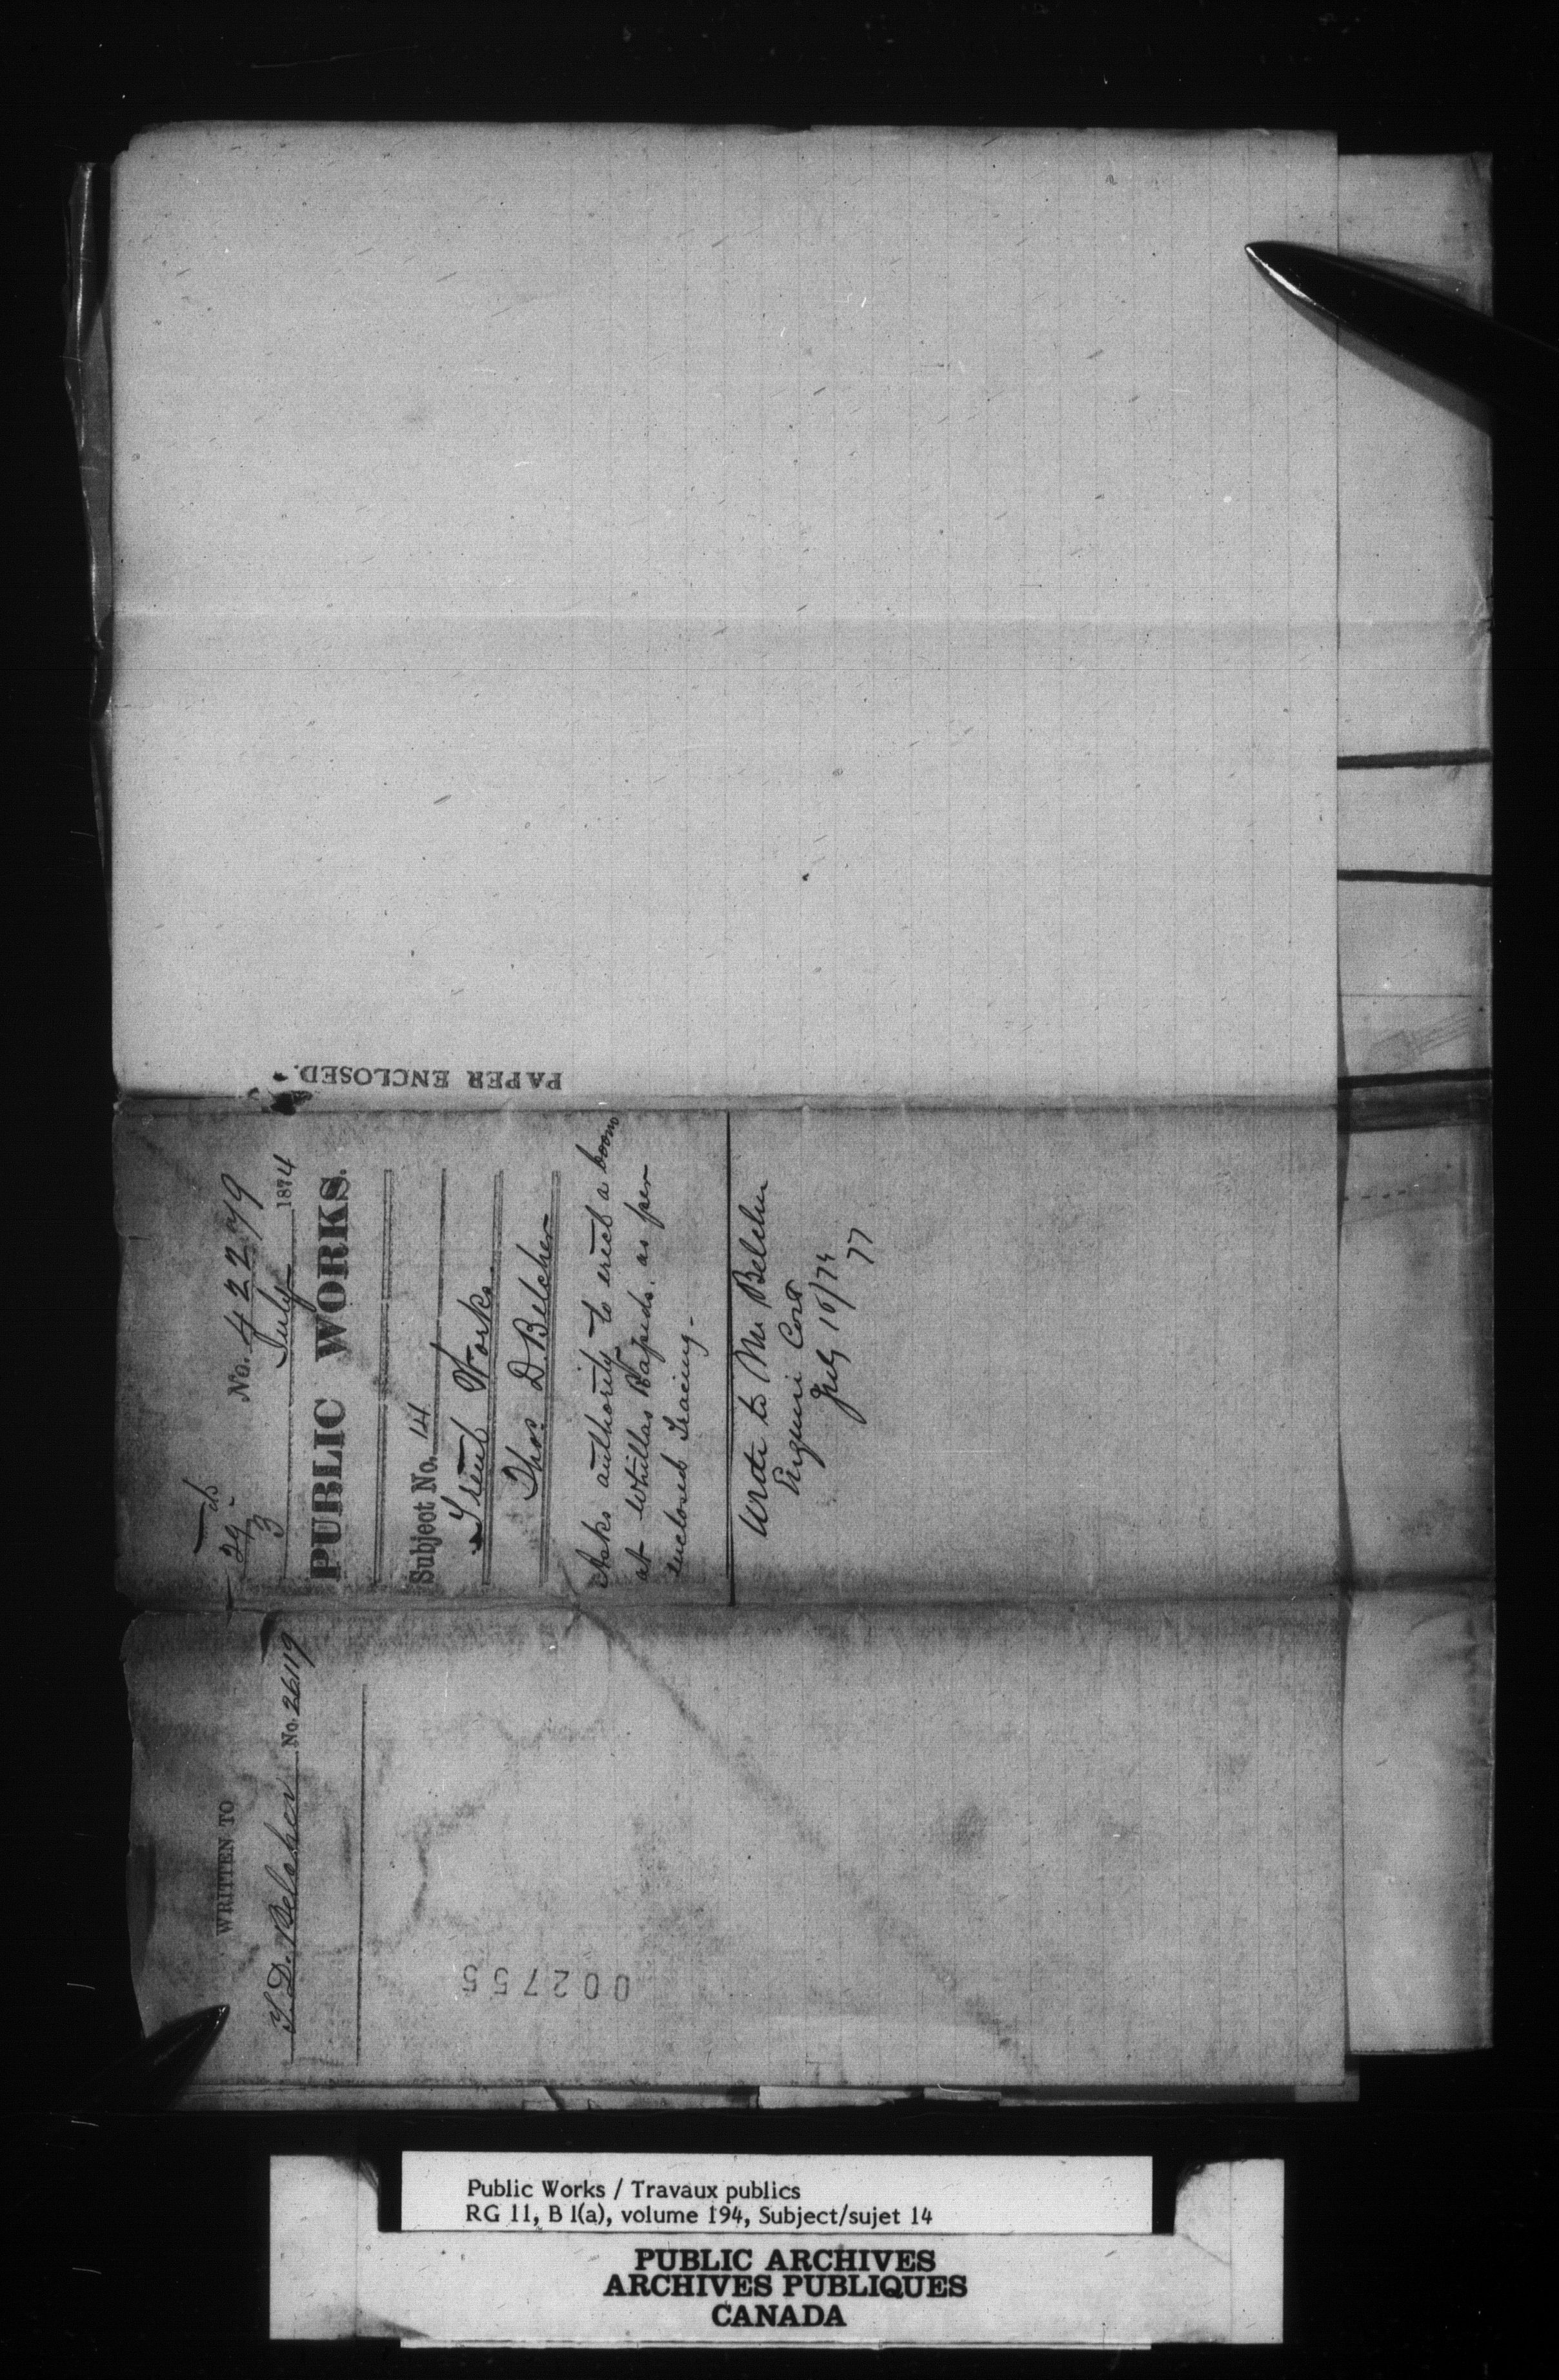 PAPER ENCLOSED.
No. 42279
29
3 July 1874
PUBLIC WORKS.
Subject No. 14
Trent Works.
Thos. D. Belcher
Asks authority to erect a boom
at Whitlas Rapids, as per
enclosed Tracing-
Wrote to Mr Belcher
Enquiri Cost
July 10/74
77
WRITTEN TO
T. D. Belcher No. 26119
002755
Public Works / Travaux publics
RG 11, B 1(a), volume 194, Subject/sujet 14
PUBLIC ARCHIVES
ARCHIVES PUBLIQUES
CANADA